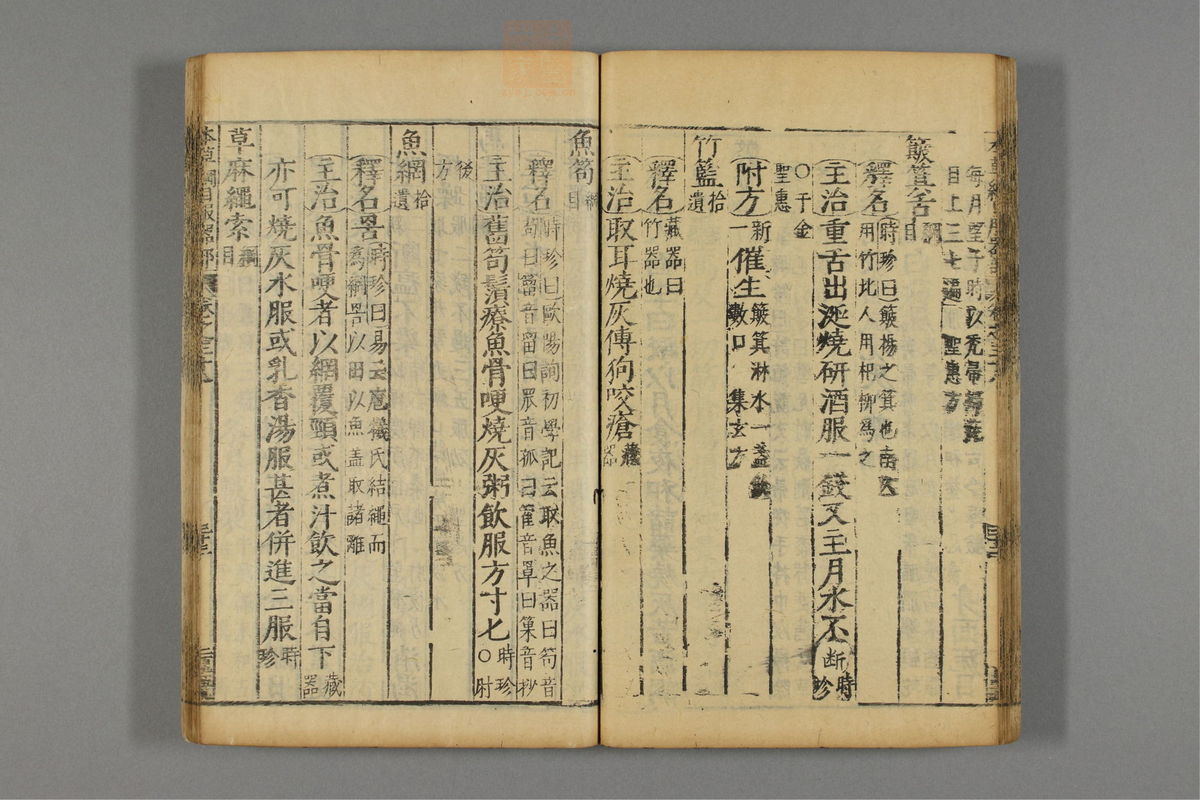 每月望子時以禿帚掃疣
目上三七遍 聖惠方
簸箕舌綱目
釋名時珍曰簸揚之箕也南人
用竹北人用杞柳爲之
主治重舌出涎燒研酒服一錢又主月水不斷時珍
○千金
聖惠
附方新一催生簸箕淋水一盞飲
數口 集玄方
竹籃拾遺
釋名藏器曰
竹器也
主治取耳燒灰傅狗咬瘡藏器
魚笱綱目
釋名時珍曰歐陽詢初學記云取魚之器曰笱音
苟曰罶音留曰罛音孤曰篧音罩曰罺音抄
主治舊笱鬚療魚骨哽燒灰粥飲服方寸匕時珍○肘
後方
魚網拾遺
釋名罟時珍曰易云庖犧氏結繩而
爲網罟以田以魚蓋取諸離
主治魚骨哽者以網覆頸或煮汁飲之當自下藏器
亦可燒灰水服或乳香湯服甚者併進三服時珍
草麻繩索綱目
本草綱目服器部